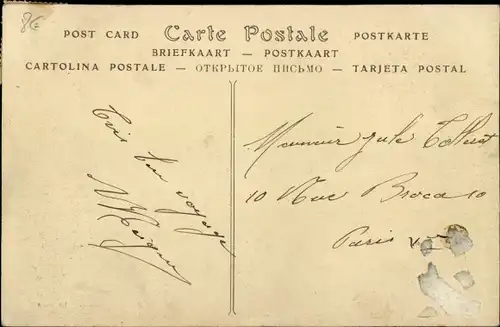 8€
POST CARD Carte Postale POSTKARTE
BRIEFKAART — POSTKAART
CARTOLINA POSTALE — ОТКРЫТОЕ ПИСЬМО — TARJETA POSTAL
bon voyage
Monsieur Jule
10 Rue Broca 10
Paris